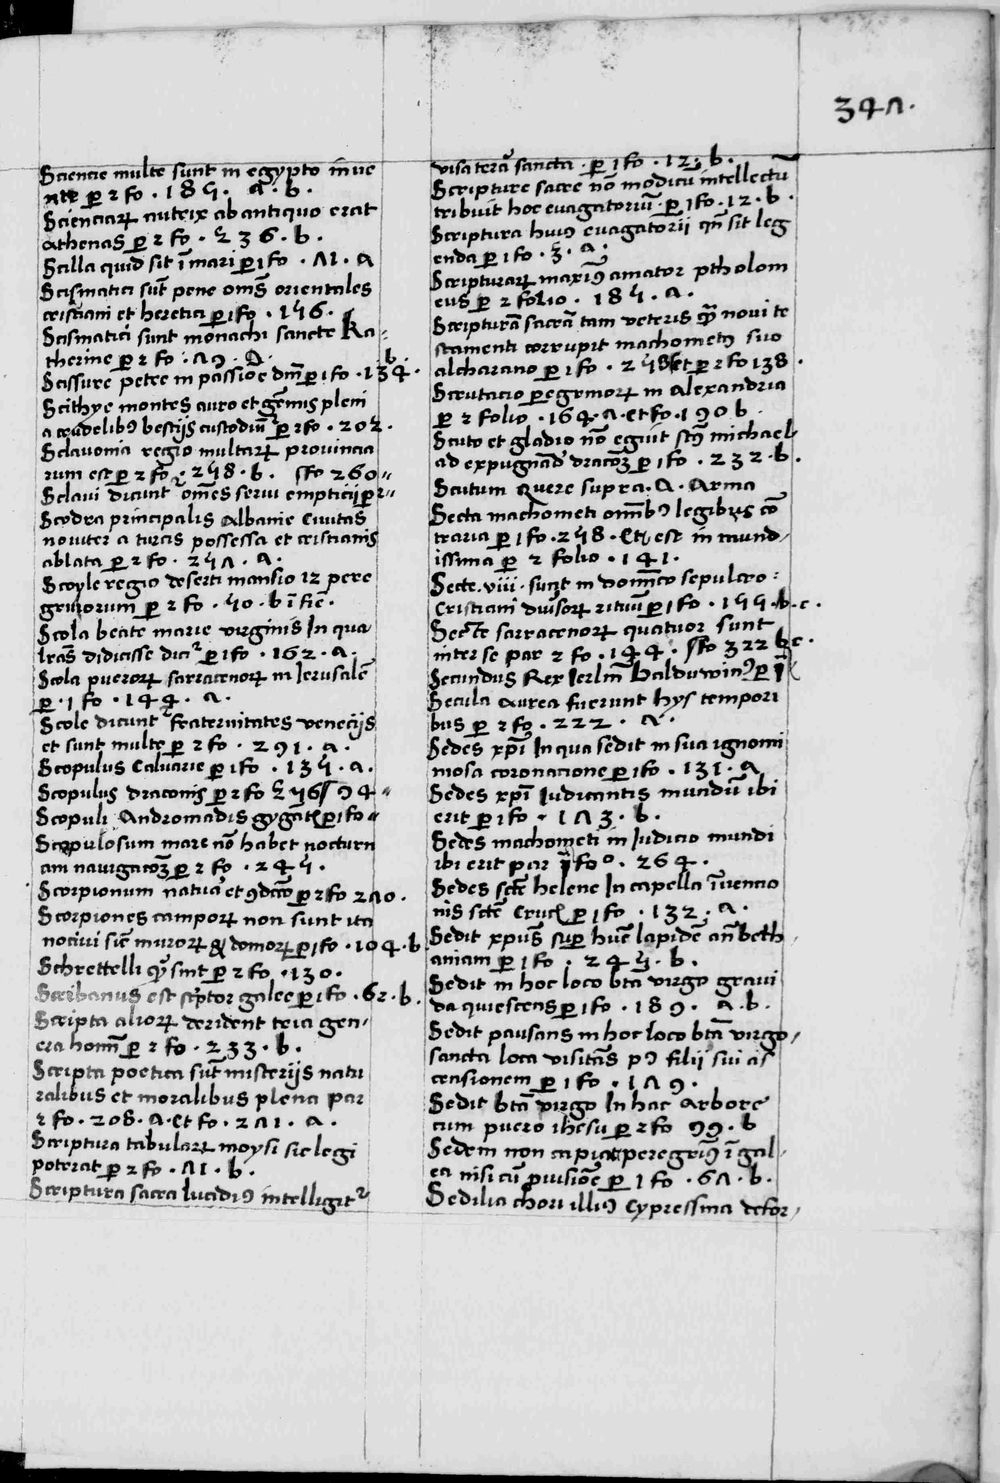 347.
Sciencie multe sunt in egypto inue
nte ꝑ 2 fo . 185 . a . b .
Scienciaꝝ nutrix ab antiquo erat
athenas ꝑ 2 fo . 236 . b .
Scilla quid sit ī mari ꝑ 1 fo . 71 . a
Scismatici sūt pene om̄s orientales
cristiani et heretici ꝑ 1 fo . 156 .
Scismatici sunt monachi sancte Ka-
therine ꝑ 2 fo . 79 .
Scissure petre in passiōe dn̄i ꝑ 1 fo . 134 . b
Scithye montes auro et gēmis pleni
a crudelibꝰ bestijs custodiūt᷑ ꝑ 2 fo . 202 .
Sclavonia regio multaꝝ prouincia
rum est ꝑ 2 fo . 258 . b . fo 260
Sclaui dicunt᷑ om̄es serui empticij ꝑ 2
Scodra principalis Albanie Ciuitas
nouiter a turcis possessa et cristianis
ablata ꝑ 2 fo . 257 . a .
Scoyle regio deserti mansio 12 pere
grinorum ꝑ 2 fo . 50 . b ī fiē .
Scola beate marie virginis In qua
lr̄as didicisse dici᷑ ꝑ 1 fo . 162 . a .
Scola pueroꝝ sarracenoꝝ in Ierusalē
ꝑ . 1 fo . 144 . a .
Scole dicunt᷑ fraternitates venecijs
et sunt multe ꝑ 2 fo . 291 . a .
Scopulus Caluarie ꝑ 1 fo . 135 . a .
Scopulus draconis ꝑ 2 fo 94
Scopuli Andromadis gygātꝭ ꝑ 1 fo
Scopulosum mare nō habet nocturn
am nauigacōꝫ ꝑ 2 fo . 245 .
Scorpionum natura et ꝯdicō ꝑ 2 fo 270 .
Scorpiones campoꝝ non sunt ita
nociui sic̄ muroꝝ domoꝝ ꝑ 1 fo . 104 . b
Schrettelli qͥ sint ꝑ 2 fo . 130 .
Scribanus est sc̄ptor galee ꝑ 1 fo . 62 . b .
Scripta alioꝝ derident tria gen-
era hom̄ ꝑ 2 fo . 233 . b .
Scripta poetica sūt misterijs natu
ralibus et moralibus plena par
2 fo . 208 . a . et fo . 271 . a .
Scriptura tabulaꝝ moysi sic legi
poterat ꝑ 2 fo . 71 . b .
Scriptura sacra lucidiꝰ intelligit᷑
visa terā sancta . ꝑ 1 fo . 12 . b .
Scripture sacre nō modicū intellectū
tribuit hoc euagatoriū . ꝑ 1 fo . 12 . b .
Scriptura huiꝰ euagatorii qn̄ sit leg
enda ꝑ 1 fo . 3 . a .
Scripturaꝝ maxīꝰ amator ptholom
eus ꝑ 2 folio . 185 . a .
Scripturā sacrā tam veteris qᷓ noui te
stamenti corrupit machometꝰ suo
alcharano ꝑ 1 fo . 258 et ꝑ 2 fo 138 .
Scrutacio ꝑegrinoꝝ in Alexandria
ꝑ 2 folio . 164 . a . et fo . 190 b .
Scuto et gladio nō eguit sctꝰ michael
ad expugnād dracōꝫ ꝑ 1 fo . 232 . b .
Scutum Quere supra . A . Arma
Secta machometi omībꝰ legibus cō
traria ꝑ 1 fo . 258 . Et est in mund
issima ꝑ 2 folio . 141 .
Secte . viii . sunt in dominico sepulcro :
Cristiani diuisoꝝ rituū ꝑ 1 fo . 155 . b . c .
Secte sarracenoꝝ quatuor sunt
inter se par 2 fo . 144 . fo 322 b c .
Secundus Rex Ierlm̄ Balduwinꝰ ꝑ
Secula aurea fuerunt hys tempori
bus ꝑ 2 fo . 222 . a .
Sedes xp̄i In qua sedit in sua ignomi
niosa coronacione ꝑ 1 fo . 131 . a
Sedes xp̄i Iudicantis mundū ibi
erit ꝑ 1 fo . 173 . b .
Sedes machometi in Iudicio mundi
ibi erit par foº . 264 .
Sedes scte helene In capella īuencio
nis scte Crucꝭ ꝑ 1 fo . 132 . a .
Sedit xpūs suꝑ hūc lapidē an̄ beth
aniam ꝑ 1 fo . 245 . b .
Sedit in hoc loco bta virgo graui
da quiescens ꝑ 1 fo . 189 . a . b .
Sedit pausans in hoc loco btā virgo
sancta loca visitās pꝰ filii sui as
censionem ꝑ 1 fo . 179 .
Sedit btā virgo In hac arbore
cum puero ihesu ꝑ 2 fo 99 . b
Sedem non capiat peregrinꝰ ī gal
ea nisi cū prouisiōe ꝑ 1 fo . 67 . b .
Sedilia chori illiꝰ Cypressina defor